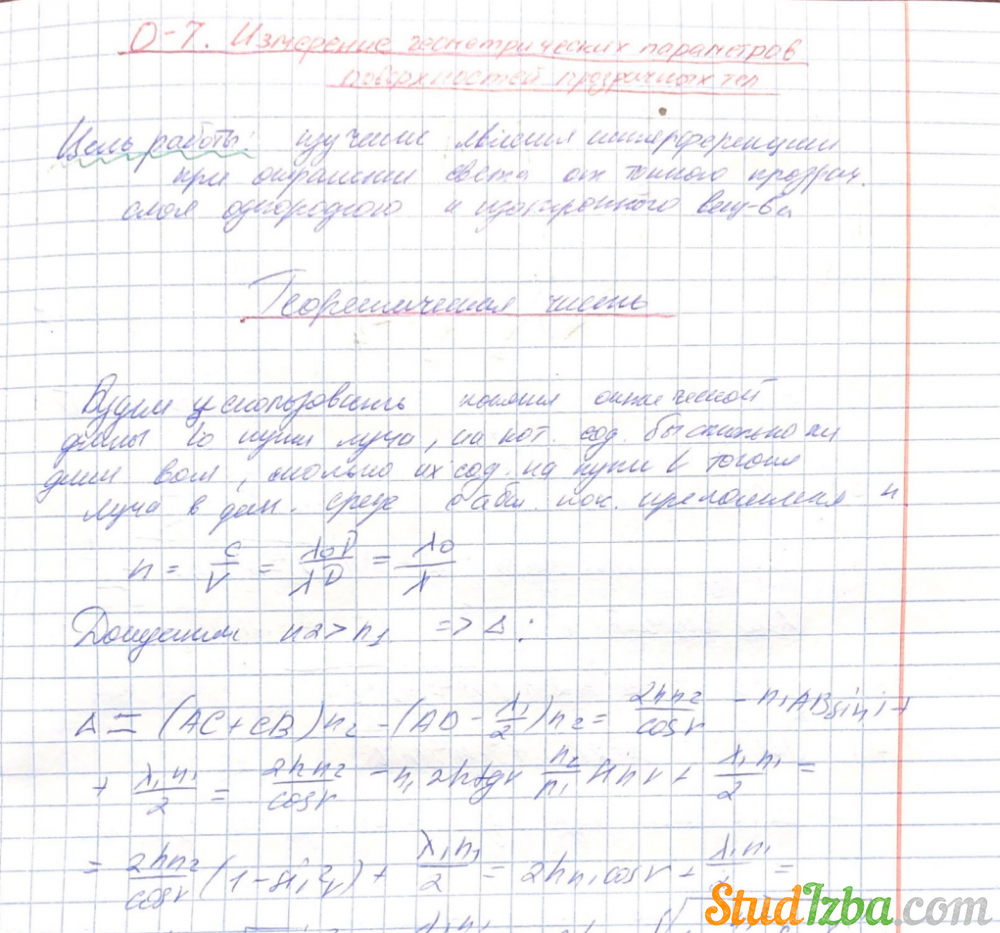 О-7. Измерение геометрических параметров
поверхностей прозрачных тел
Цель работы: изучение явления интерференции
при отражении света от тонкого прозрач.
слоя однородного и изотропного вещ-ва
Теоретическая часть
Будем использовать понятия оптической
длины пути луча, на кот. сод. бы столько же
длин волн, сколько их сод. на пути L того же
луча в дан. среде с абс. пок. преломления n
n = c/V = λ0ν/λν = λ0/λ
Допустим n2 > n1 => Δ:
Δ = (AC+CB)n2 - (AD - λ1/2)n2 = 2hn2/cosr - n1ABsini +
+ λ1n1/2 = 2hn2/cosr - n1 2htgr n2/n1 sinr + λ1n1/2 =
= 2hn2/cosr (1-sin²r) + λ1n1/2 = 2hn1cosr + λ1n1/2 =
StudIzba.com